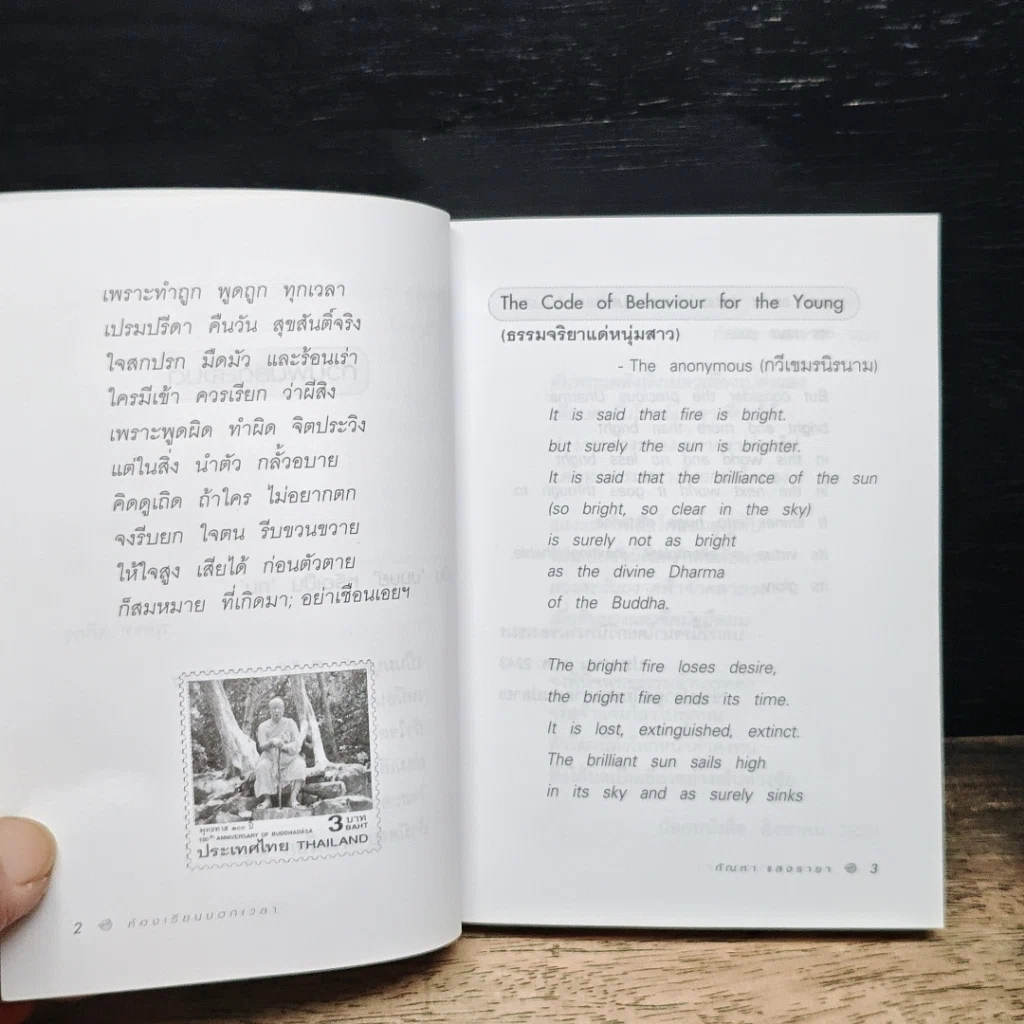 เพราะทำถูก พูดถูก ทุกเวลา
เปรมปรีดา คืนวัน สุขสันติ์จริง
ใจสกปรก มืดมัว และร้อนเร่า
ใครมีเข้า ควรเรียก ว่าผีสิง
เพราะพูดผิด ทำผิด จิตประวิง
แต่ในสิ่ง นำตัว กลั้วอบาย
คิดดูเถิด ถ้าใคร ไม่อยากตก
จงรีบยก ใจตน รีบขวนขวาย
ให้ใจสูง เสียได้ ก่อนตัวตาย
ก็สมหมาย ที่เกิดมา; อย่าเชือนเอยฯ
พุทธทาส ๑๐๐ ปี
100th ANNIVERSARY OF BUDDHADĀSA
3 บาท BAHT
ประเทศไทย THAILAND
2 ห้องเรียนนอกเวลา
The Code of Behaviour for the Young
(ธรรมจริยาแด่หนุ่มสาว)
- The anonymous (กวีเขมรนิรนาม)
It is said that fire is bright.
but surely the sun is brighter.
It is said that the brilliance of the sun
(so bright, so clear in the sky)
is surely not as bright
as the divine Dharma
of the Buddha.
The bright fire loses desire,
the bright fire ends its time.
It is lost, extinguished, extinct.
The brilliant sun sails high
in its sky and as surely sinks
กัณหา แสงรายา 3